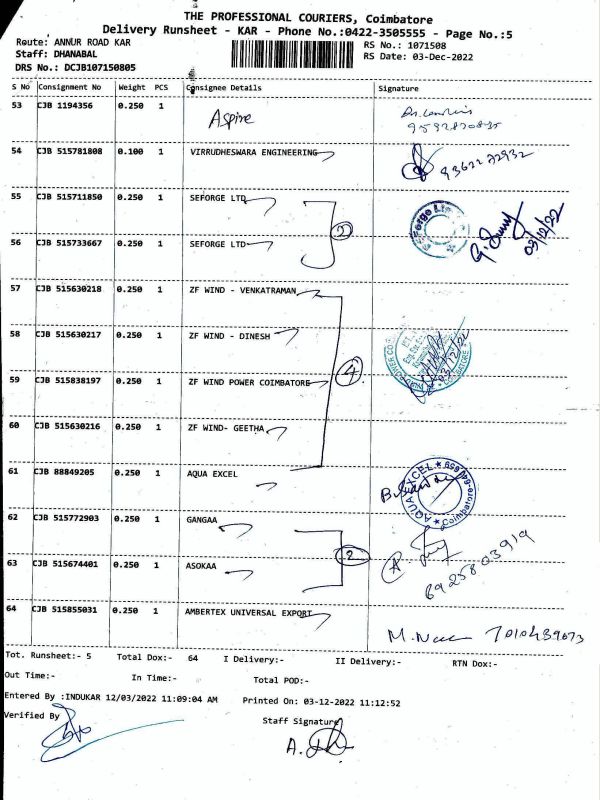 THE PROFESSIONAL COURIERS, Coimbatore
Delivery Runsheet - KAR - Phone No.:0422-3505555 - Page No.:5
Route: ANNUR ROAD KAR
RS No.: 1071508
Staff: DHANABAL
RS Date: 03-Dec-2022
DRS No.: DCJB107150805
S No Consignment No Weight PCS Consignee Details Signature
53 CJB 1194356 0.250 1 Aspire
54 CJB 515781808 0.100 1 VIRRUDHESWARA ENGINEERING 9362272932
55 CJB 515711850 0.250 1 SEFORGE LTD
2
56 CJB 515733667 0.250 1 SEFORGE LTD 03/12/22
57 CJB 515630218 0.250 1 ZF WIND - VENKATRAMAN
58 CJB 515630217 0.250 1 ZF WIND - DINESH
4
59 CJB 515838197 0.250 1 ZF WIND POWER COIMBATORE
60 CJB 515630216 0.250 1 ZF WIND- GEETHA
61 CJB 88849205 0.250 1 AQUA EXCEL AQUA EXCEL Coimbatore-641 659
62 CJB 515772903 0.250 1 GANGAA
2
63 CJB 515674401 0.250 1 ASOKAA 6925803919
64 CJB 515855031 0.250 1 AMBERTEX UNIVERSAL EXPORT
Tot. Runsheet:- 5 Total Dox:- 64 I Delivery:- II Delivery:- RTN Dox:-
Out Time:- In Time:- Total POD:-
Entered By :INDUKAR 12/03/2022 11:09:04 AM Printed On: 03-12-2022 11:12:52
Verified By Staff Signature